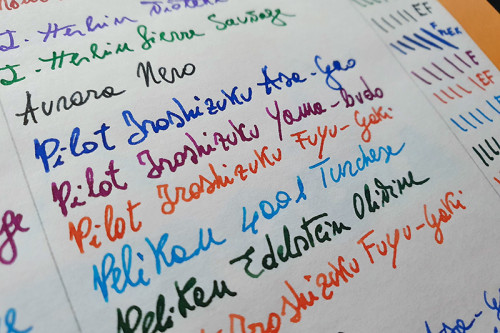 J. Herbin
J. Herbin Lierre Sauvage
Aurora Nero
Pilot Iroshizuku Asa-Gao
Pilot Iroshizuku Yama-budo
Pilot Iroshizuku Fuyu-Gaki
Pelikan 4001 Turchese
Pelikan Edelstein Olivine
Iroshizuku Fuyu-Gaki
EF
F FLEX
F
EF
EF
EF